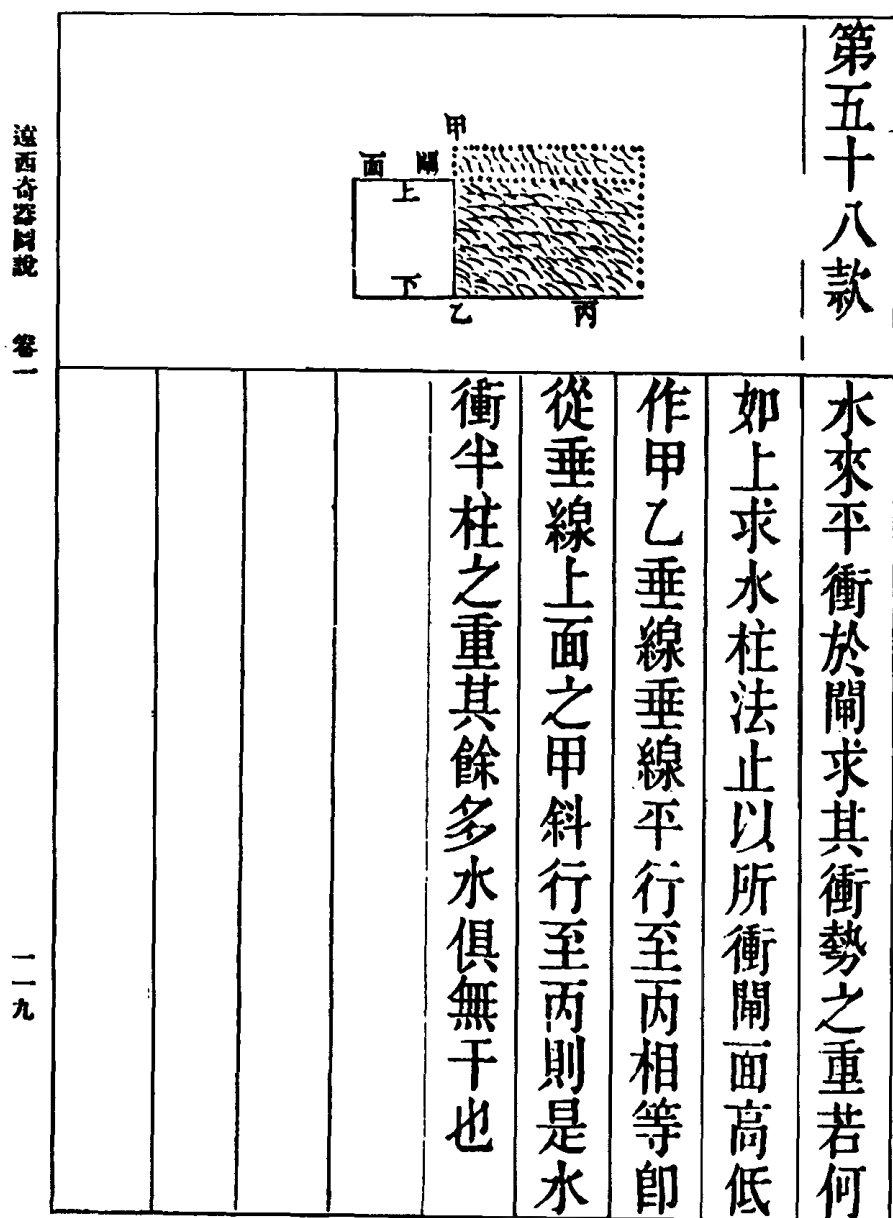 第五十八款
甲
面 閘
上
下
乙
丙
水來平衝於閘求其衝勢之重若何
如上求水柱法止以所衝閘面高低
作甲乙垂線垂線平行至丙相等卽
從垂線上面之甲斜行至丙則是水
衝半柱之重其餘多水俱無干也
遠西奇器圖說 卷一
一一九